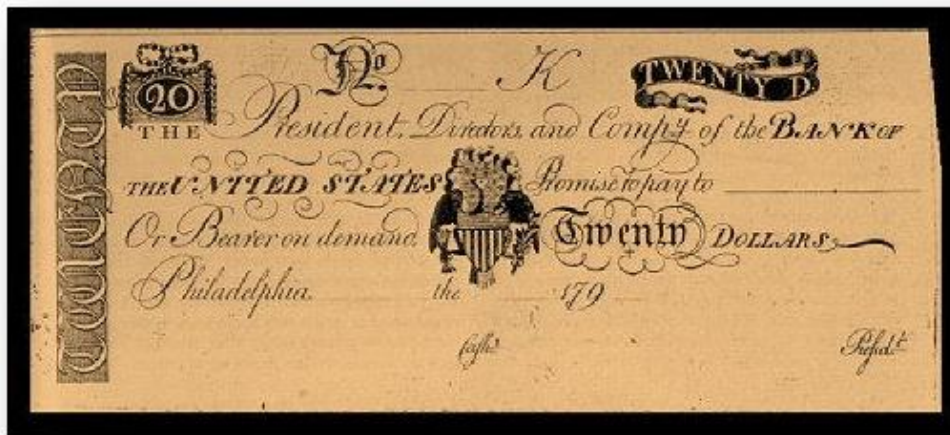 TWENTY
20
No. K
TWENTY D.
THE President, Directors, and Compy of the BANK OF
THE UNITED STATES Promise to pay to
Or Bearer on demand, Twenty DOLLARS
Philadelphia, the 179
Cashr. Presidt.